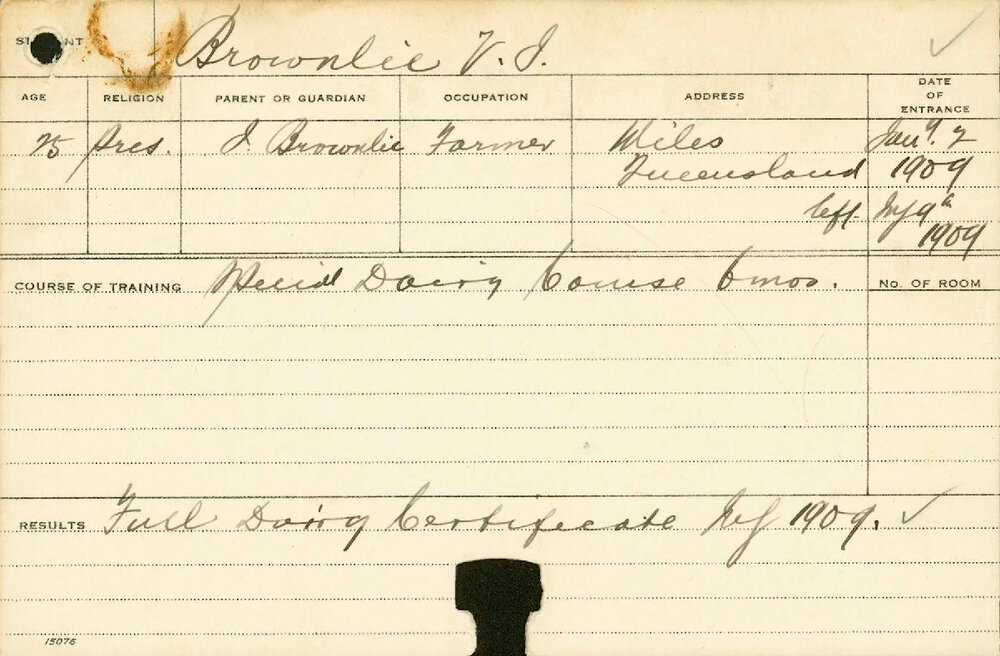 STUDENT Brownlie V. J.
AGE RELIGION PARENT OR GUARDIAN OCCUPATION ADDRESS DATE OF ENTRANCE
25 Pres. J. Brownlie Farmer Miles Jany. 2
Queensland 1909
left July 9th
1909
COURSE OF TRAINING Special Dairy Course 6 mos. No. OF ROOM
RESULTS Full Dairy Certificate July 1909. ✓
15076